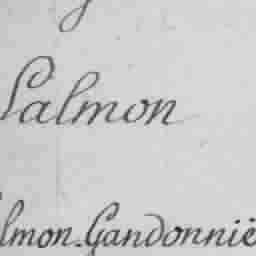 Salmon
lmon. Gandonnië